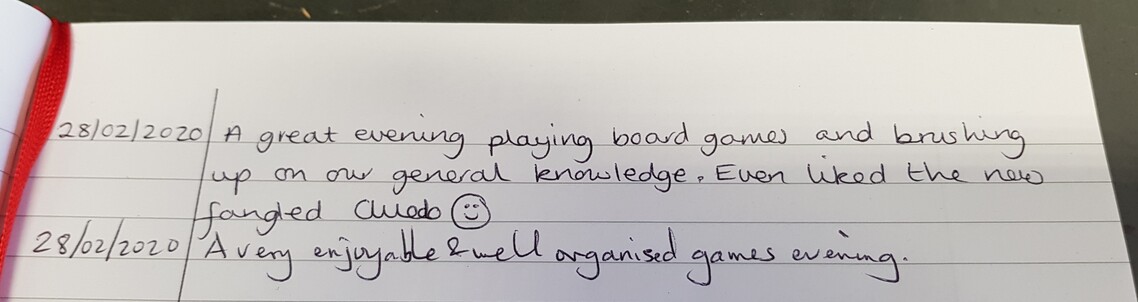 28/02/2020 A great evening playing board games and brushing
up on our general knowledge. Even liked the new
fangled Cluedo ☺
28/02/2020 A very enjoyable & well organised games evening.